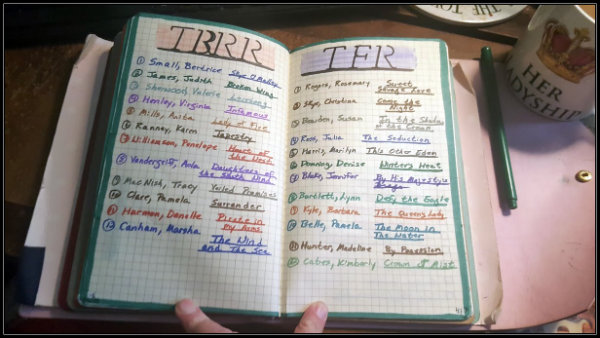 TBRR
① Small, Bertrice Skye O'Malley
② James, Judith Broken Wing
③ Sherwood, Valerie
④ Henley, Virginia Infamous
⑤ Mills, Anita Lady of Fire
⑥ Ranney, Karen Tapestry
⑦ Williamson, Penelope Heart of
the West
⑧ Vandergriff, Aola Daughters of
the Wind
⑨ MacNish, Tracy Veiled Promises
⑩ Clare, Pamela Surrender
⑪ Harmon, Danelle Pirate in
My Arms
⑫ Canham, Marsha The Wind
and The Sea
TFR
① Rogers, Rosemary Sweet
Savage Love
② Skye, Christina Come the
Night
③ Bowden, Susan In the Shadow
of the Crown
④ Ross, Julia The Seduction
⑤ Harris, Marilyn This Other Eden
⑥ Domning, Denise Winter's Heat
⑦ Blake, Jennifer By His Majesty's
Grace
⑧ Bartlett, Lynn Defy the Eagle
⑨ Kyle, Barbara The Queen's Lady
⑩ Belle, Pamela The Moon in
The Water
⑪ Hunter, Madeline By Possession
⑫ Cates, Kimberly Crown of Mist
HER
LADYSHIP